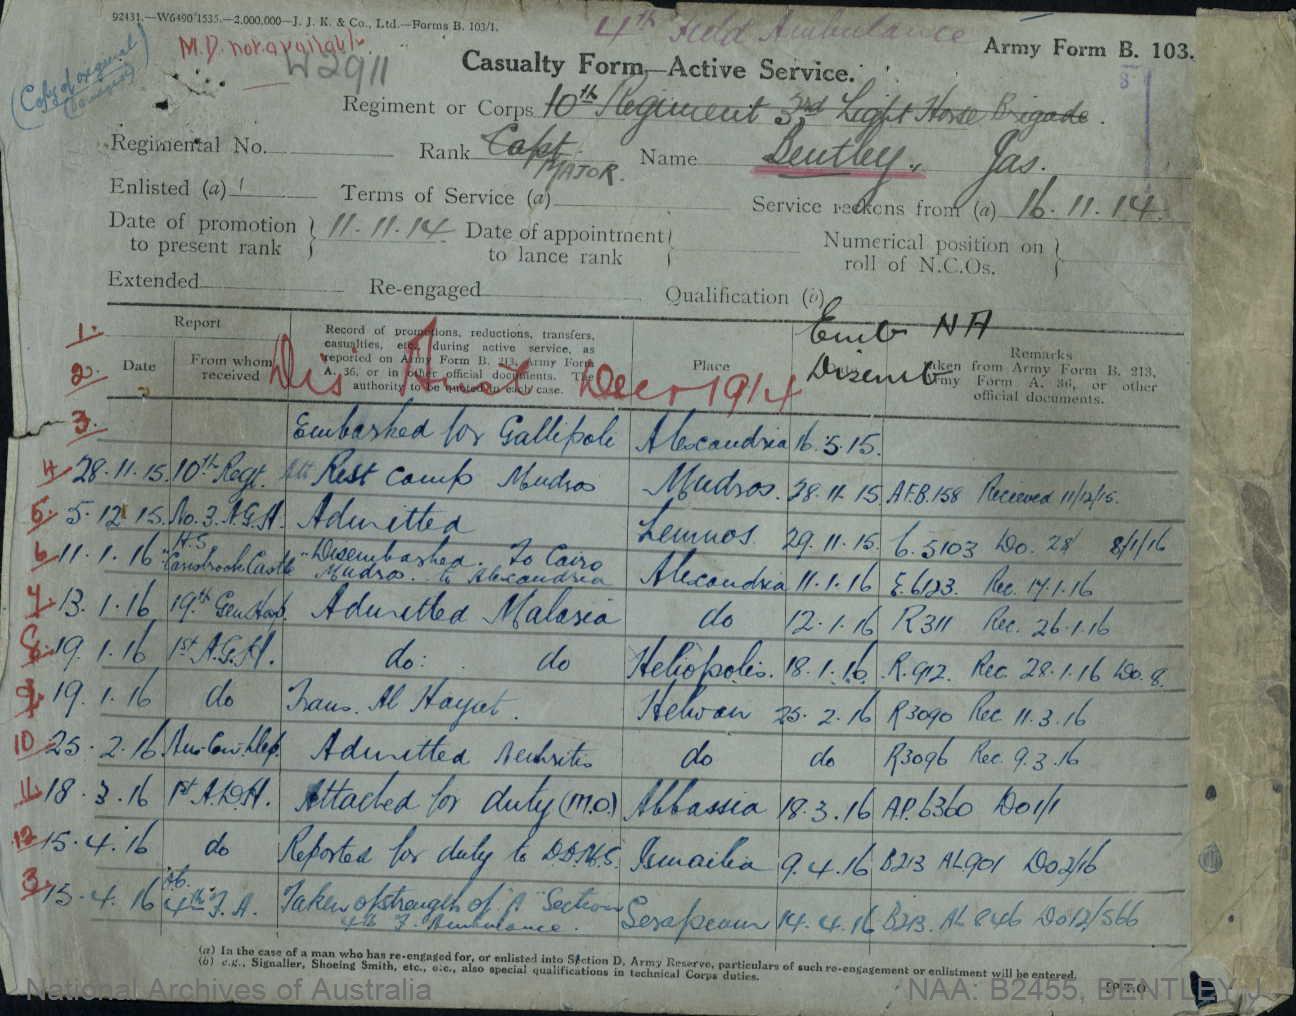 92431.—W6490/1535.—2,000,000—J. J. K. & Co., Ltd.—Forms B. 103/1.
4th Field Ambulance
Army Form B. 103.
M.D. not available
W2911
(Copy of original
Casualty Form—Active Service.
8
Regiment or Corps 10th Regiment 3rd Light Horse Brigade.
Regimental No. Rank Capt. MAJOR. Name Bentley, Jas.
Enlisted (a) Terms of Service (a) Service reckons from (a) 16.11.14.
Date of promotion to present rank } 11.11.14. Date of appointment to lance rank } Numerical position on roll of N.C.Os. }
Extended Re-engaged Qualification (b)
Emb NA
Disemb
Report
Date From whom received
Record of promotions, reductions, transfers, casualties, etc., during active service, as reported on Army Form B. 213, Army Form A. 36, or in other official documents. The authority to be quoted in each case.
Place
Remarks taken from Army Form B. 213, Army Form A. 36, or other official documents.
Dis Aust Decr 1914
1.
2.
3. Embarked for Gallipoli Alexandria 16.5.15.
4 28.11.15. 10th Regt. Att Rest Camp Mudros Mudros. 28.11.15 AFB.158 Received 11/12/15.
5. 5.12.15. No. 3. A.G.H. Admitted Lemnos. 29.11.15. b.5103 Do. 28 8/1/16
6 11.1.16 H.S. "Carisbrook Castle" Disembarked. To Cairo Mudros. to Alexandria Alexandria 11.1.16 E.6123. Rec. 17.1.16
7 13.1.16 19th Gen Hosp. Admitted Malaria do 12.1.16 R311 Rec. 26.1.16
8. 19.1.16 1st A.G.H. do: do Heliopolis. 18.1.16. R.912. Rec. 28.1.16 Do. 8.
9. 19.1.16 do Trans. Al Hayat. Helwan 25.2.16 R3090 Rec 11.3.16
10 25.2.16. Aus. Con. Dep. Admitted Neuritis do do R3096 Rec. 9.3.16
11 18.3.16 1st A.D.H. Attached for duty (M.O.) Abbassia 18.3.16 AP.6360 Do1/1
12 15.4.16 do Reported for duty to D.D.M.S. Ismailia 9.4.16 B213 AL901 Do2/16
3. 15.4.16 4th F.A. Taken of strength of "A" Section 4th F. Ambulance. Serapeum 14.4.16 B213. AL846 Do12/566
(a) In the case of a man who has re-engaged for, or enlisted into Section D. Army Reserve, particulars of such re-engagement or enlistment will be entered.
(b) e.g., Signaller, Shoeing Smith, etc., etc., also special qualifications in technical Corps duties.
[P.T.O.
National Archives of Australia
NAA: B2455, BENTLEY J